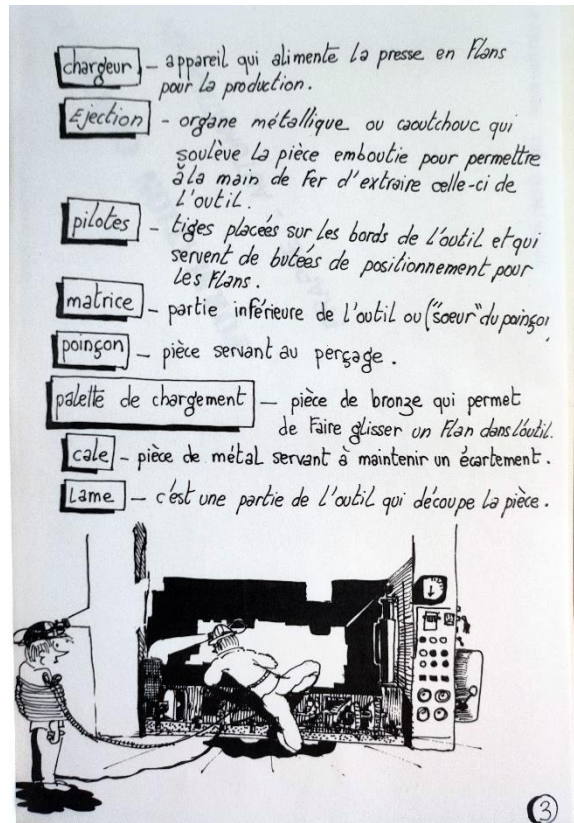 chargeur – appareil qui alimente la presse en Flans
pour la production.
Ejection – organe métallique ou caoutchouc qui
soulève la pièce emboutie pour permettre
à la main de Fer d'extraire celle-ci de
l'outil.
pilotes – tiges placées sur les bords de l'outil et qui
servent de butées de positionnement pour
les Flans.
matrice – partie inférieure de l'outil ou ("soeur" du poinço
poinçon – pièce servant au perçage.
palette de chargement – pièce de bronze qui permet
de Faire glisser un Flan dans l'outil.
cale – pièce de métal servant à maintenir un écartement.
Lame – c'est une partie de l'outil qui découpe la pièce.
3